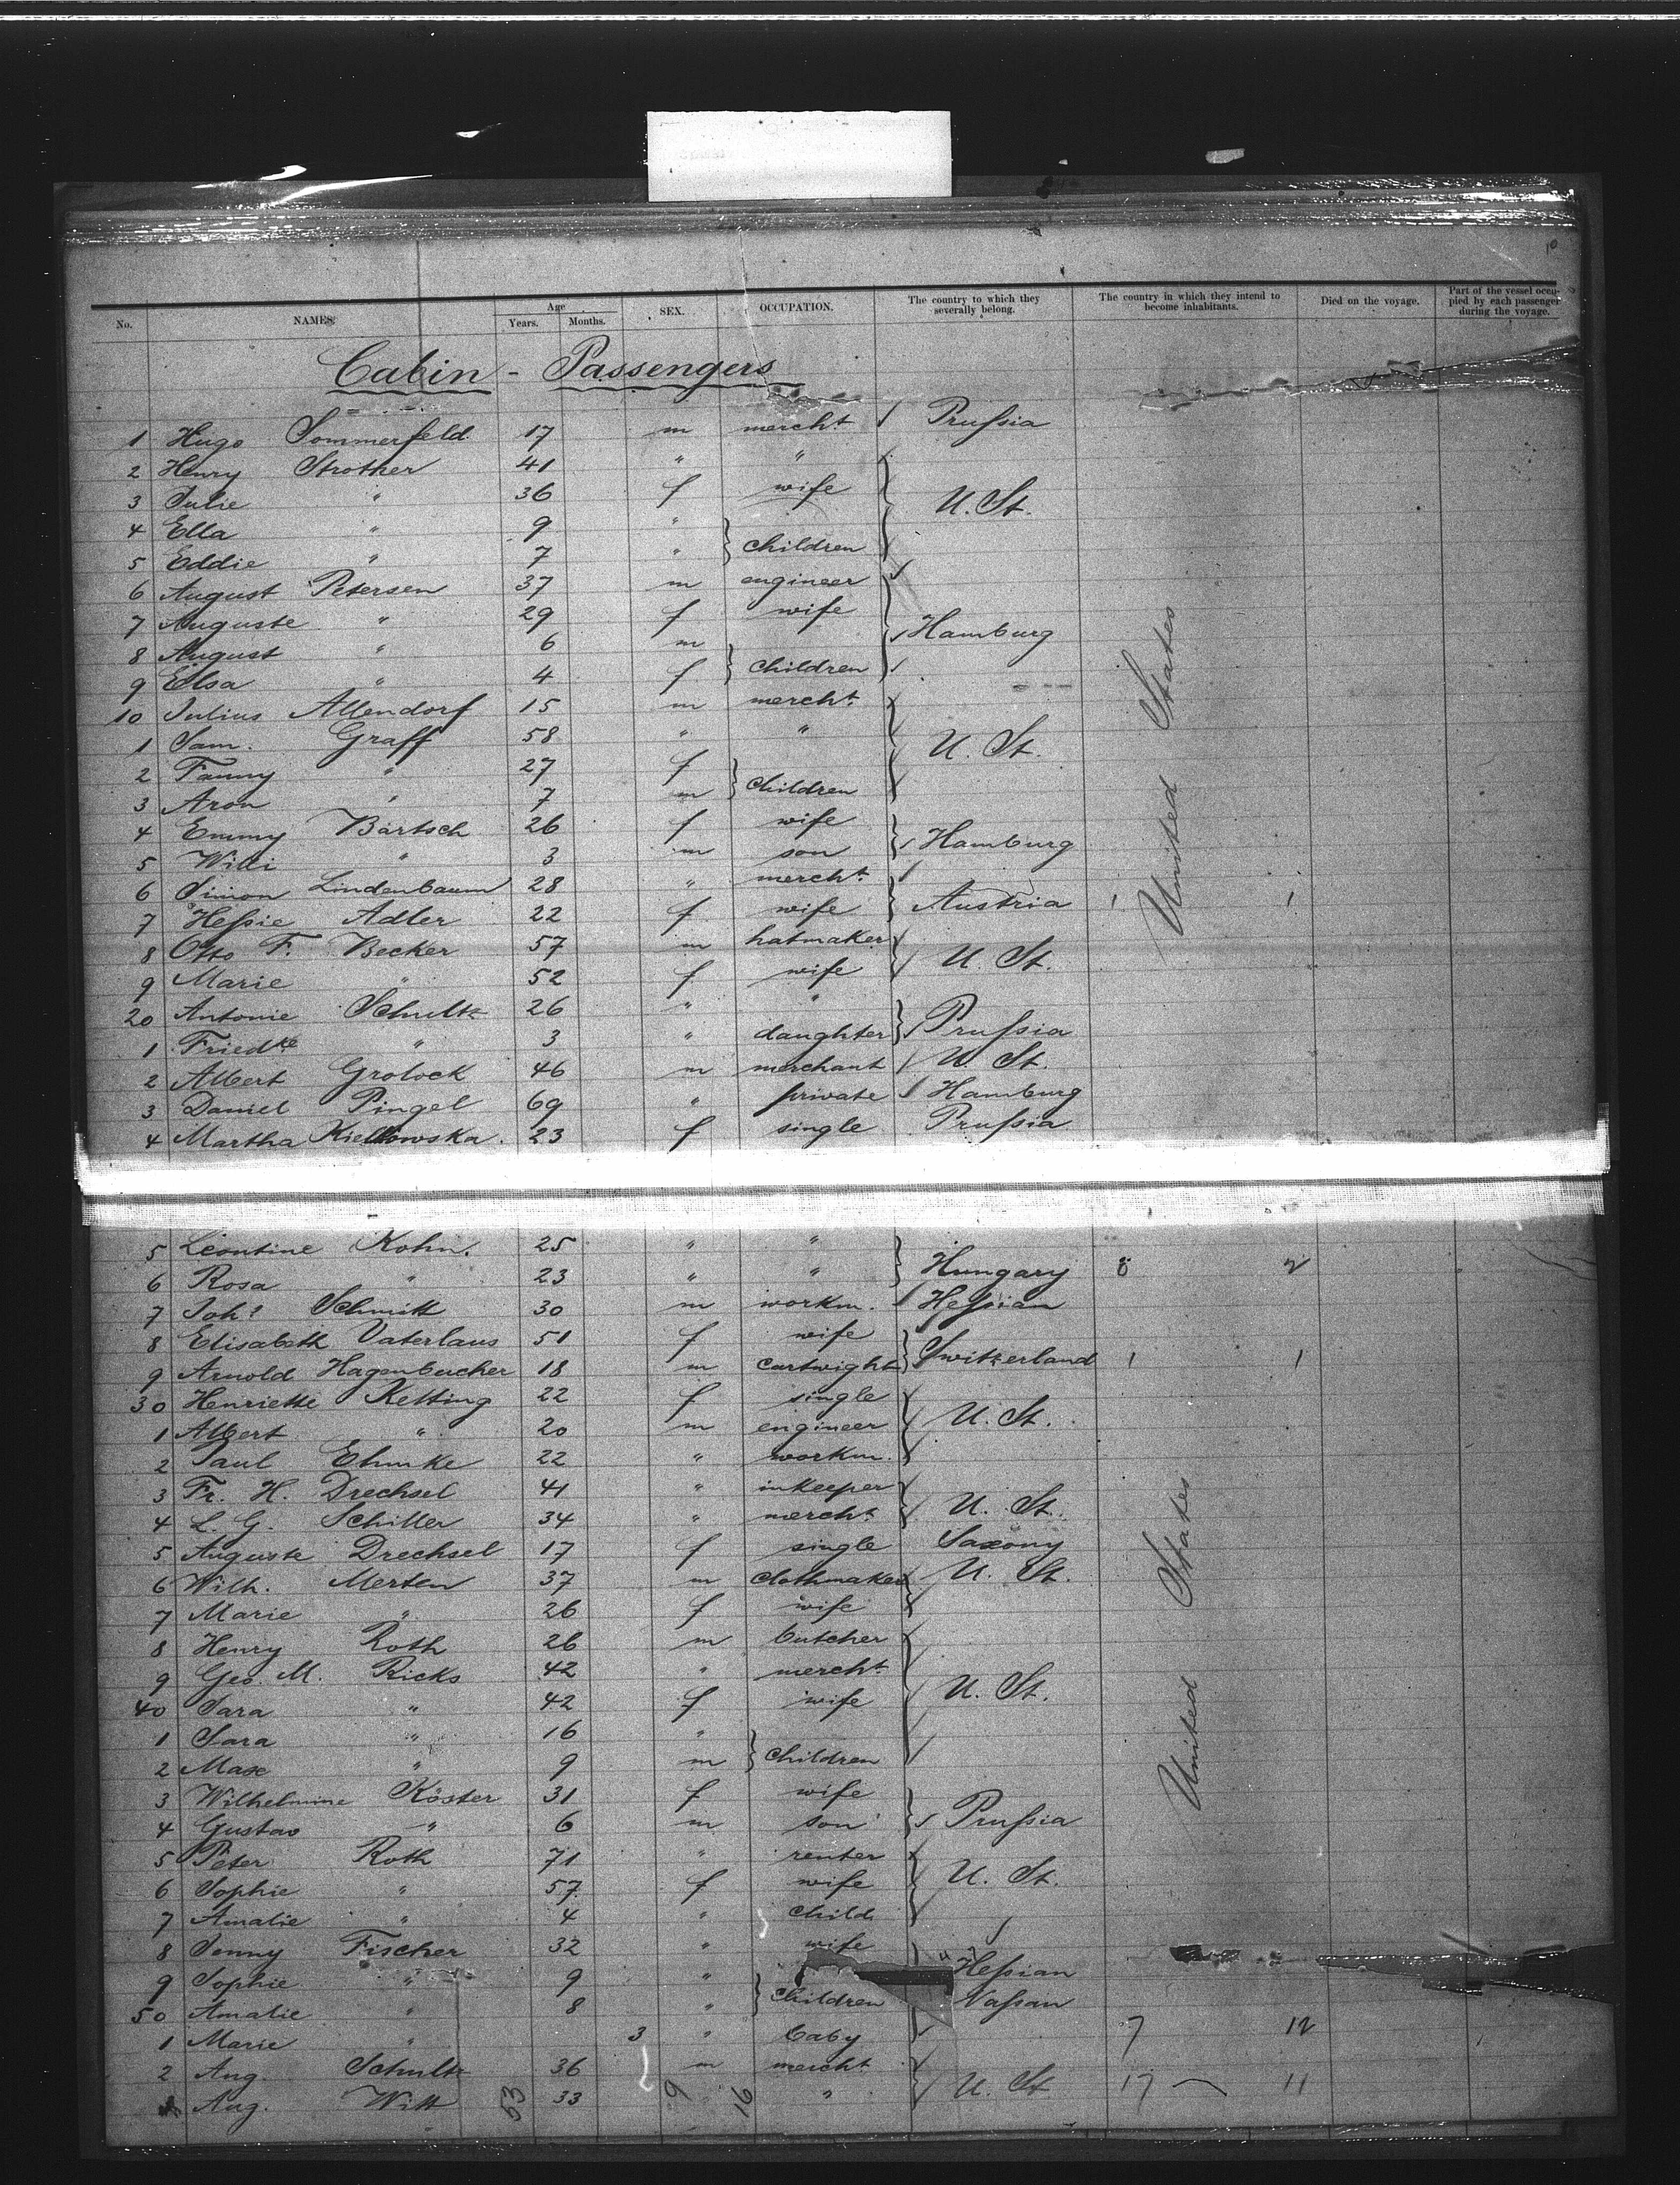 No. NAMES. Age Years. Months. SEX. OCCUPATION. The country to which they severally belong. The country in which they intend to become inhabitants. Died on the voyage. Part of the vessel occupied by each passenger during the voyage.
Cabin - Passengers
1 Hugo Sommerfeld 17 m mercht Prußia
2 Henry Strother 41 " "
3 Julie " 36 f wife U. St.
4 Ella " 9 "
5 Eddie " 7 " children
6 August Petersen 37 m engineer
7 Auguste " 29 f wife Hamburg
8 August " 6 m
9 Elsa " 4 f children
10 Julius Allendorf 15 m mercht.
1 Sam. Graff 58 " " U. St.
2 Fanny " 27 f
3 Aron " 7 m children
4 Emmy Bartsch 26 f wife Hamburg
5 Willi " 3 m son
6 Simon Lindenbaum 28 " mercht.
7 Heßie Adler 22 f wife Austria 1 1
8 Otto F. Becker 57 m hatmaker U. St.
9 Marie " 52 f wife
20 Antonie Schultz 26 " "
1 Friedke " 3 " daughter Prußia
2 Albert Grolock 46 m merchant U. St.
3 Daniel Pingel 69 " private Hamburg
4 Martha Kielkowska 23 f single Prußia
United States
5 Leontine Kohn. 25 " "
6 Rosa " 23 " " Hungary 8 2
7 Joh. Schmitt 30 m workm. Heßian
8 Elisabeth Vaterlaus 51 f wife Switzerland
9 Arnold Hagenbucher 18 m cartwight 1 1
30 Henriette Ketting 22 f single U. St.
1 Albert " 20 m engineer
2 Paul Ehmke 22 " workm.
3 Fr. H. Drechsel 41 " inkeeper U. St.
4 L. G. Schiller 34 " mercht.
5 Auguste Drechsel 17 f single Saxony
6 Wilh. Merten 37 m clothmaker U. St.
7 Marie " 26 f wife
8 Henry Roth 26 m butcher
9 Geo. M. Ricks 42 " mercht. U. St.
40 Sara " 42 f wife
1 Sara " 16 "
2 Max " 9 m children
3 Wilhelmine Köster 31 f wife
4 Gustav " 6 m son Prußia
5 Peter Roth 71 " renter U. St.
6 Sophie " 57 f wife
7 Amalie " 4 " child
8 Jenny Fischer 32 " wife
9 Sophie " 9 " Heßian
50 Amalie " 8 " children Naßau
1 Marie " 3 " baby 7 12
2 Aug. Schultz 36 m mercht.
Aug. Witt 33 " U. St 17 11
53 9 16
United States